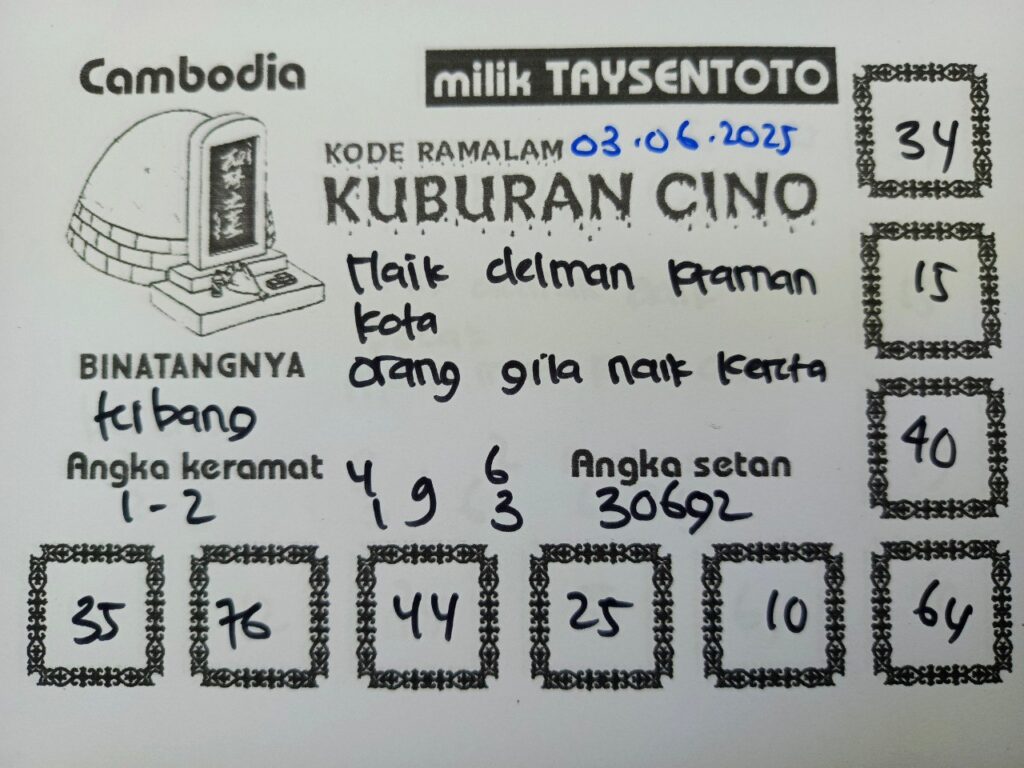 Cambodia
milik TAYSENTOTO
KODE RAMALAM 03.06.2025
KUBURAN CINO
Naik delman ktaman
kota
orang gila naik kereta
BINATANGNYA
terbang
Angka keramat
1-2
4 6
1 9 3
Angka setan
30692
34
15
40
35 76 44 25 10 64